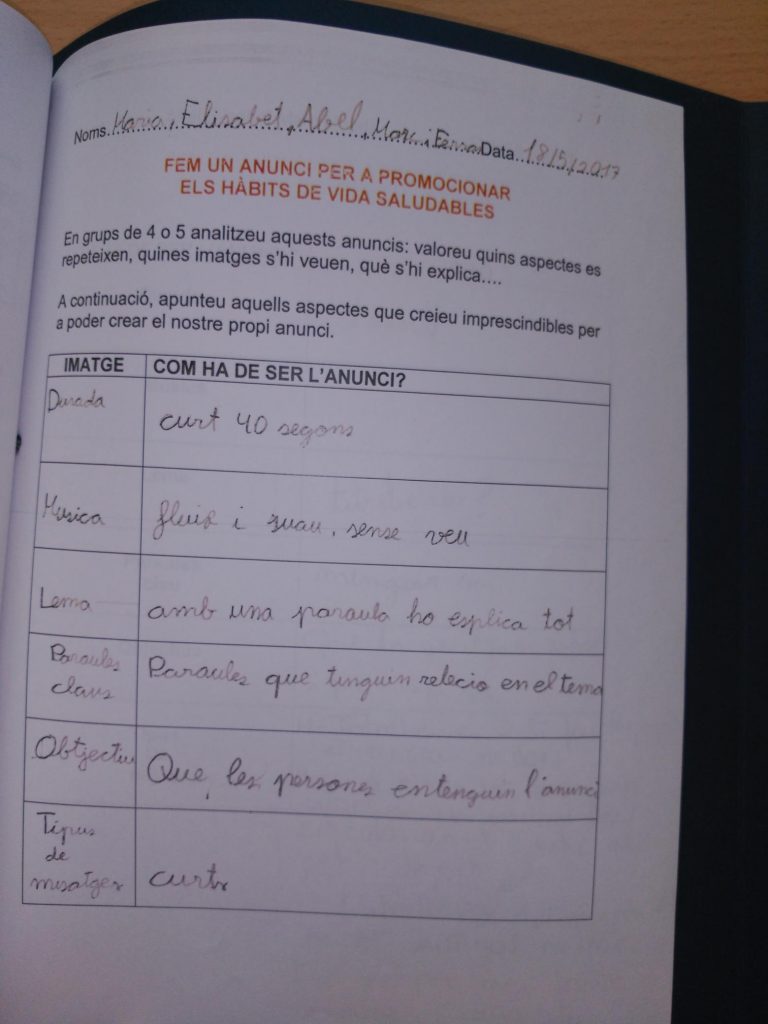 Noms Maria, Elisabet, Abel, Marc i Data 18/5/2017
FEM UN ANUNCI PER A PROMOCIONAR
ELS HÀBITS DE VIDA SALUDABLES
En grups de 4 o 5 analitzeu aquests anuncis: valoreu quins aspectes es
repeteixen, quines imatges s'hi veuen, què s'hi explica....
A continuació, apunteu aquells aspectes que creieu imprescindibles per
a poder crear el nostre propi anunci.
IMATGE COM HA DE SER L'ANUNCI?
Durada
curt 40 segons
Musica fluix i suau, sense veu
Lema amb una paraula ho esplica tot
Paraules
claus
Paraules que tinguin relecio en el tema
Obtjectiu
Que les persones entenguin l'anunci
Tipus
de
misatges
curts